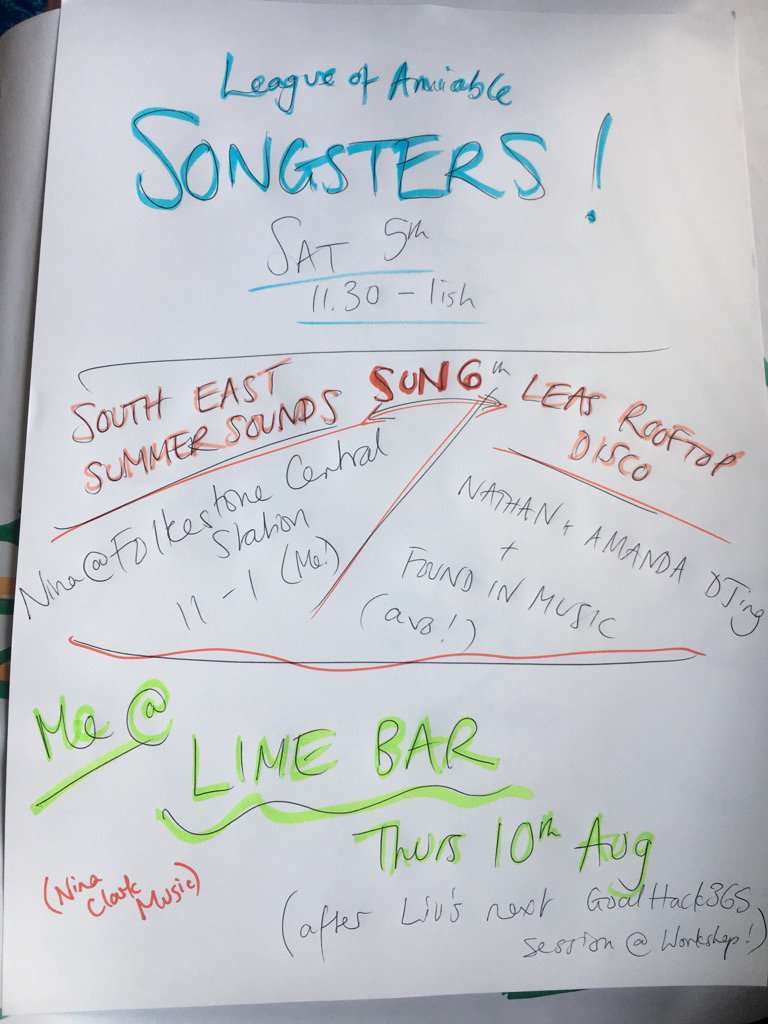 League of Amiable
SONGSTERS!
SAT 5th
11.30 - 1ish
SUN 6th
SOUTH EAST
SUMMER SOUNDS
Nina @ Folkestone Central
Station
11 - 1 (Me!)
LEAS ROOFTOP
DISCO
NATHAN + AMANDA DJing
+
FOUND IN MUSIC
(avo!)
Me @
LIME BAR
Thurs 10th Aug
(Nina
Clark
Music)
(after Liv's next GoalHack365
session @ Workshop!)